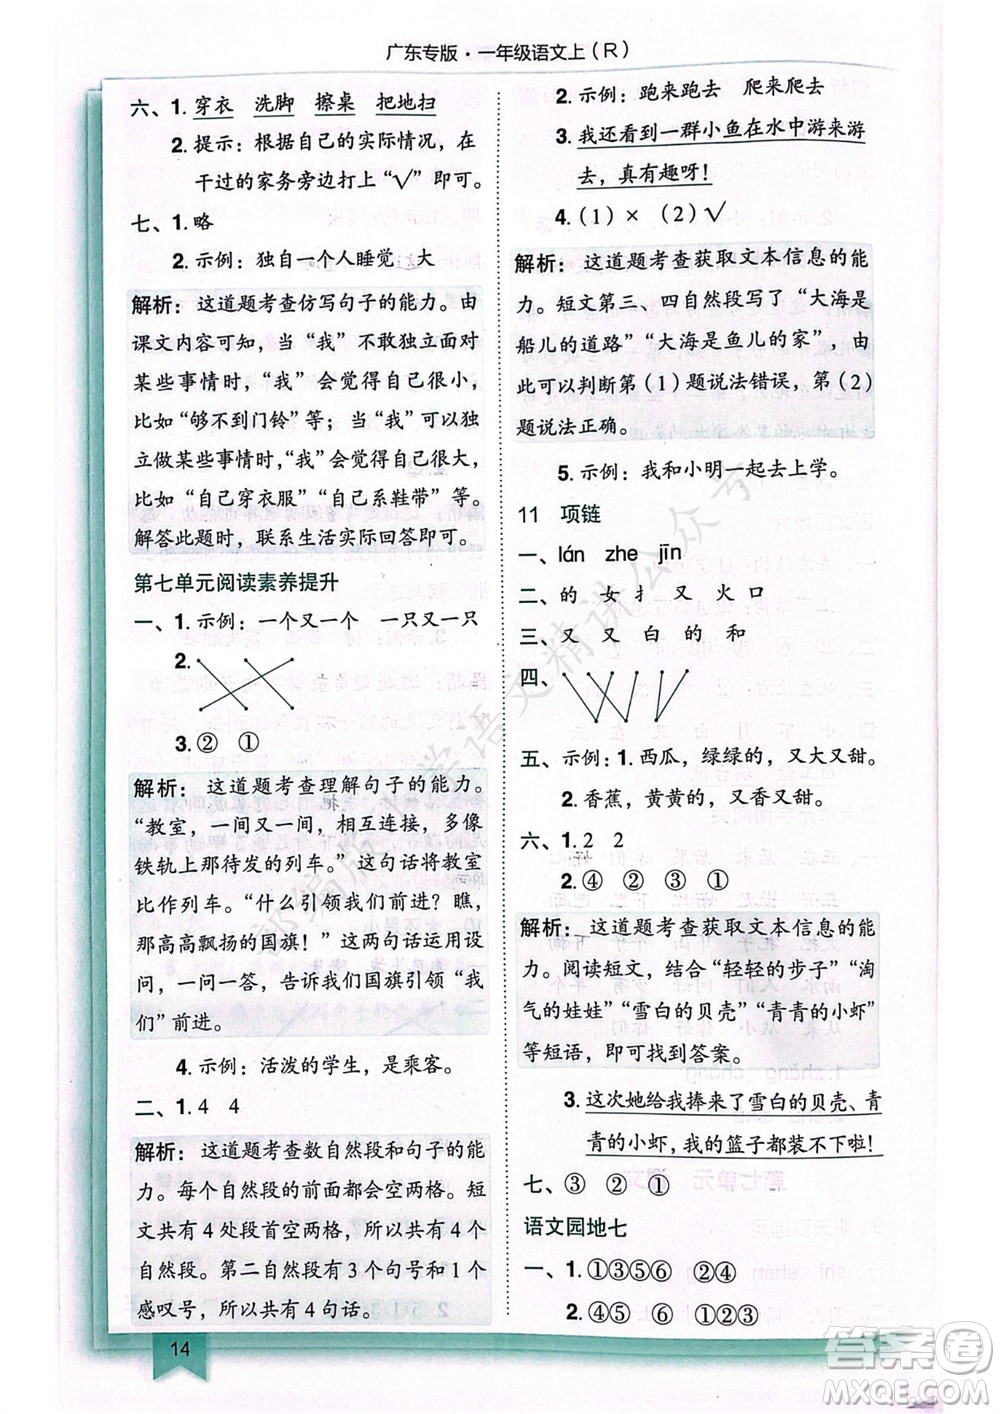 广东专版·一年级语文上（R）
六、1. 穿衣 洗脚 擦桌 把地扫
2. 提示：根据自己的实际情况，在
干过的家务旁边打上“√”即可。
七、1. 略
2. 示例：独自一个人睡觉 大
解析：这道题考查仿写句子的能力。由
课文内容可知，当“我”不敢独立面对
某些事情时，“我”会觉得自己很小，
比如“够不到门铃”等；当“我”可以独
立做某些事情时，“我”会觉得自己很大，
比如“自己穿衣服”“自己系鞋带”等。
解答此题时，联系生活实际回答即可。
第七单元阅读素养提升
一、1. 示例：一个又一个 一只又一只
2.
3. ② ①
解析：这道题考查理解句子的能力。
“教室，一间又一间，相互连接，多像
铁轨上那待发的列车。”这句话将教室
比作列车。“什么引领我们前进？瞧，
那高高飘扬的国旗！”这两句话运用设
问，一问一答，告诉我们国旗引领“我
们”前进。
4. 示例：活泼的学生，是乘客。
二、1. 4 4
解析：这道题考查数自然段和句子的能
力。每个自然段的前面都会空两格。短
文共有 4 处段首空两格，所以共有 4 个
自然段。第二自然段有 3 个句号和 1 个
感叹号，所以共有 4 句话。
2. 示例：跑来跑去 爬来爬去
3. 我还看到一群小鱼在水中游来游
去，真有趣呀！
4.（1）× （2）√
解析：这道题考查获取文本信息的能
力。短文第三、四自然段写了“大海是
船儿的道路”“大海是鱼儿的家”，由
此可以判断第（1）题说法错误，第（2）
题说法正确。
5. 示例：我和小明一起去上学。
11 项链
一、lán zhe jīn
二、的 女 扌 又 火 口
三、又 又 白 的 和
四、
五、示例：1. 西瓜，绿绿的，又大又甜。
2. 香蕉，黄黄的，又香又甜。
六、1. 2 2
2. ④ ② ③ ①
解析：这道题考查获取文本信息的能
力。阅读短文，结合“轻轻的步子”“淘
气的娃娃”“雪白的贝壳”“青青的小虾”
等短语，即可找到答案。
3. 这次她给我捧来了雪白的贝壳、青
青的小虾，我的篮子都装不下啦！
七、③ ② ①
语文园地七
一、1. ①③⑤⑥ ②④
2. ④⑤⑥ ①②③
14
答案圈
MXQE.COM